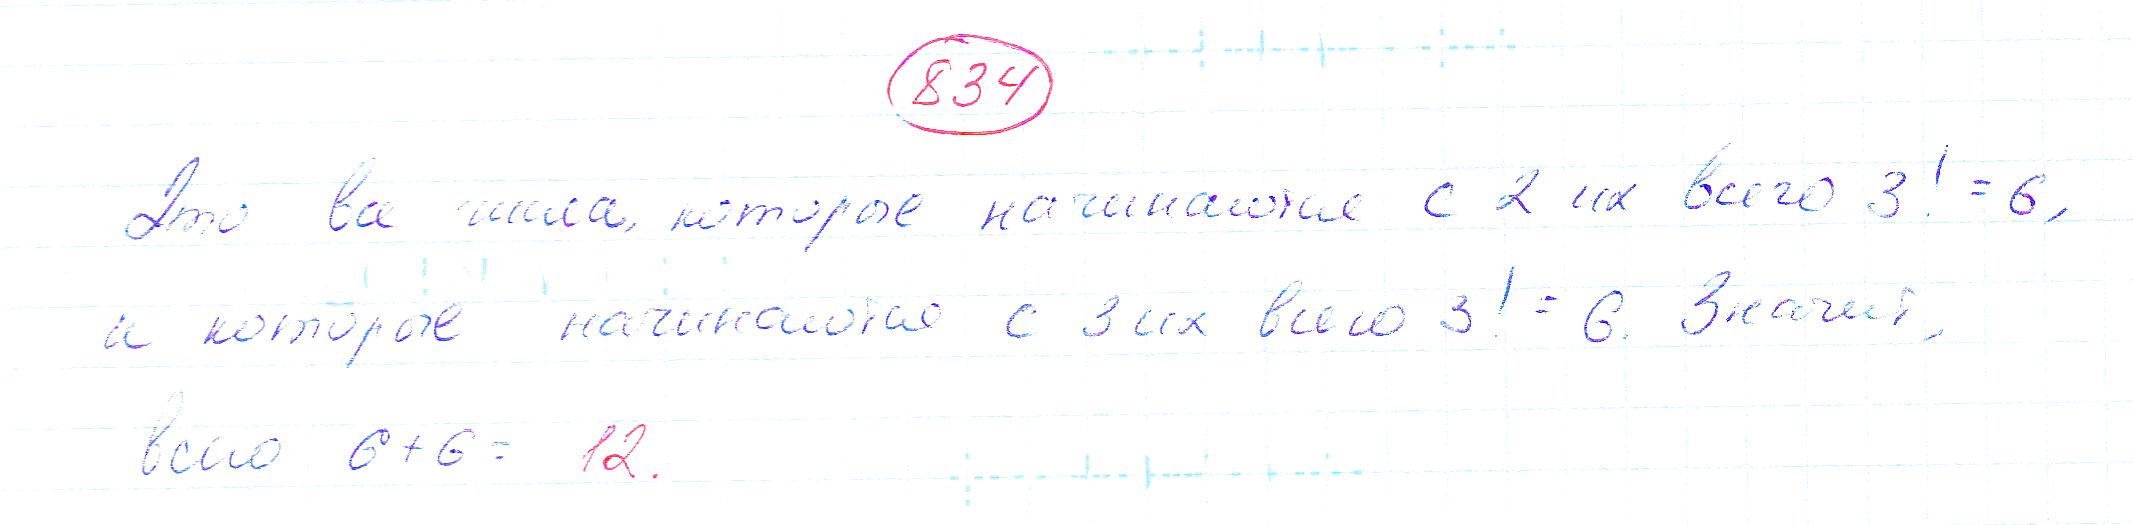 834
Это все числа, которые начинаются с 2 их всего 3! = 6,
и которые начинаются с 3 их всего 3! = 6. Значит,
всего 6+6= 12.